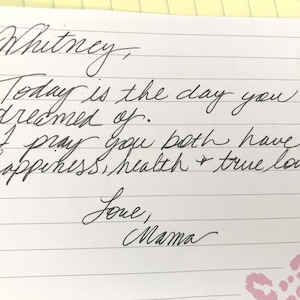 Whitney,
Today is the day you
dreamed of.
I pray you both have
happiness, health + true love
Love,
Mama